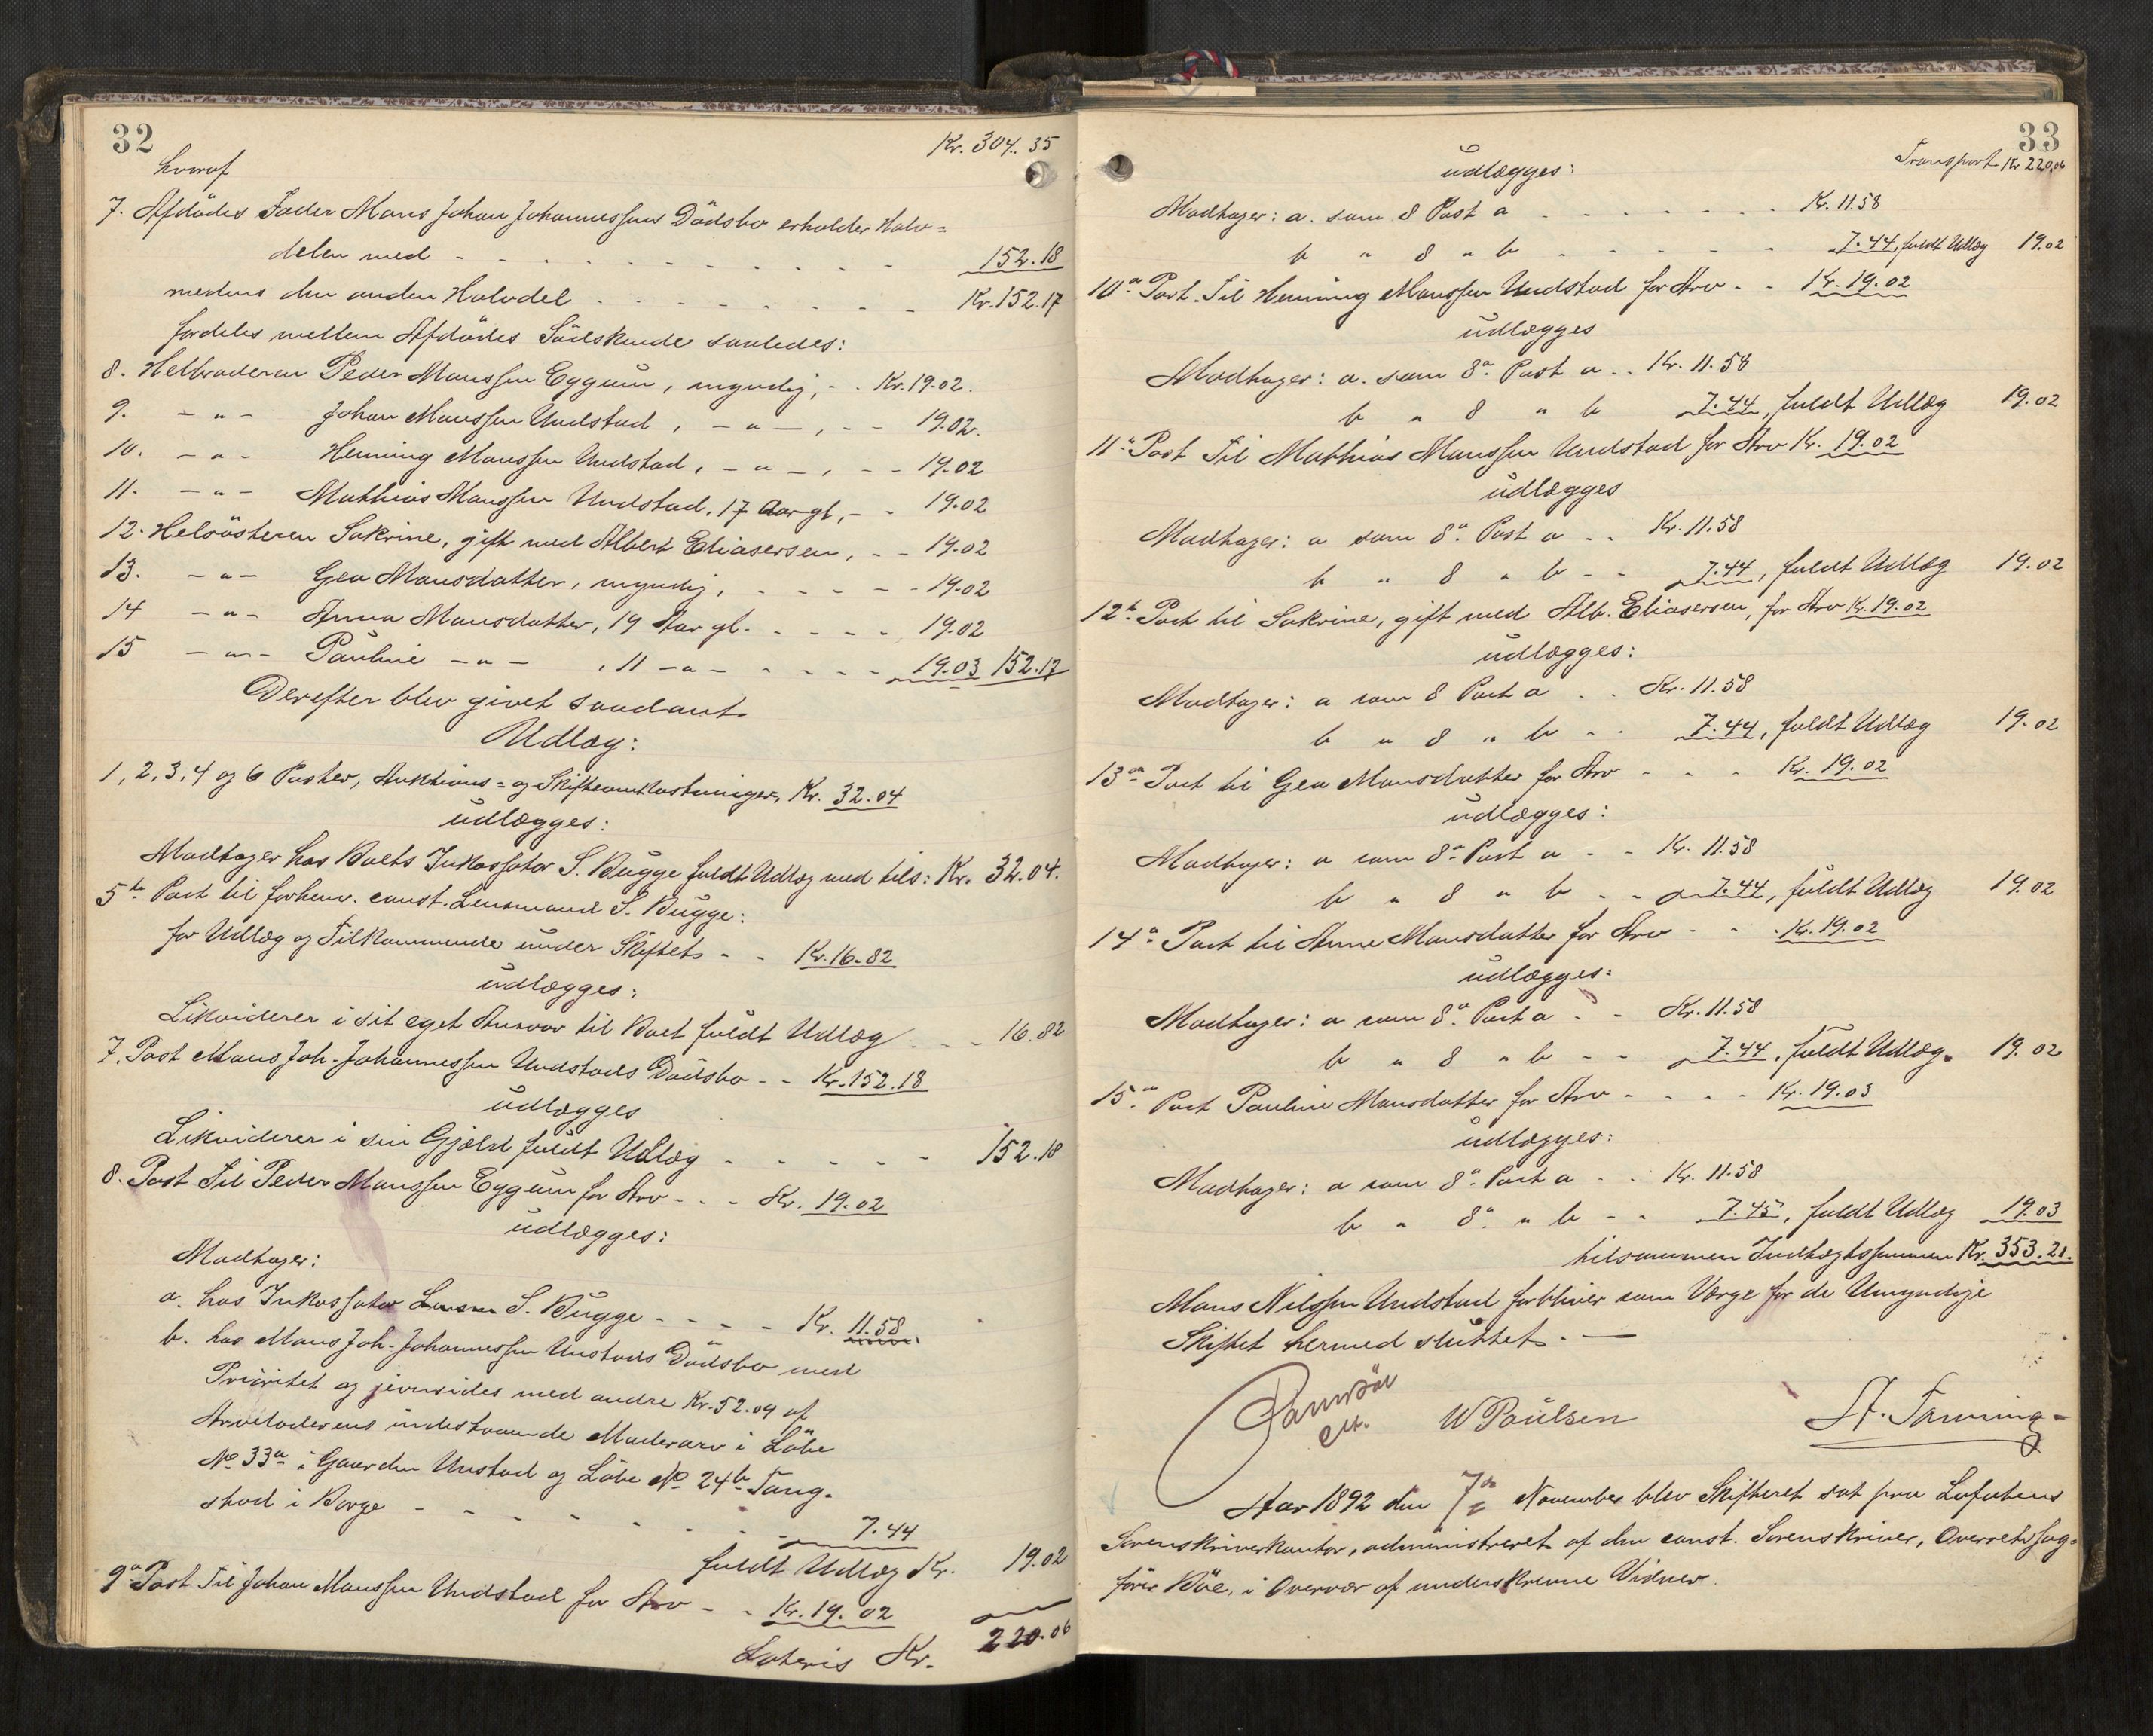 32
Kr. 304.35
hvoraf
7. Afdødes Fader Mons Johan Johannessens Dødsbo erholder Halv=
delen med - - - - 152.18
medens den anden Halvdel - - - - Kr. 152.17
fordeles mellem Afdødes Södskende saaledes:
8. Helbroderen Peder Monssen Eggum, myndig, - - Kr. 19.02.
9. - " - Johan Monssen Undstad, - " -, - - 19.02.
10. - " - Henning Monssen Undstad, - " -, - - 19.02
11. - " - Mathias Monssen Undstad, 17 Aar gl, - - 19.02
12. Helsösteren Sakrine, gift med Albert Eliasersen, - - 19.02
13. - " - Gea Monsdatter, myndig, - - - - 19.02
14 - " - Anna Monsdatter, 19 Aar gl. - - - - 19.02
15 - " - Pauline - " - , 11 - " - - - - - 19.03 152.17
Derefter blev givet saadant
Udlæg:
1, 2, 3, 4 og 6 Poster, Auktions= og Skifteomkostninger, Kr. 32.04
udlægges:
Modtager hos Boets Inkassator S. Bugge fuldt Udlæg med tils: Kr. 32.04.
5te Post til forhenv. const. Lensmand S. Bugge:
for Udlæg og Tilkommende under Skiftet - - Kr. 16.82
udlægges:
Likviderer i sit eget Ansvar til Boet fuldt Udlæg - - - 16.82
7. Post Mons Joh. Johannessen Undstads Dödsbo - - Kr. 152.18
udlægges
Likviderer i sin Gjæld fuldt Udlæg - - - - - 152.18
8. Post Til Peder Monssen Eggum for Arv - - - Kr. 19.02
udlægges:
Modtager:
a. hos Inkassator Lensm S. Bugge - - - - Kr. 11.58
b. hos Mons Joh. Johannessen Unstads Dödsbo med
Prioritet og jevnsides med andre Kr. 52.09 af
Arveladerens indestaaende Moderarv i Löbe
No 33a i Gaarden Unstad og Löbe No 24b Tang-
stad i Borge - - - - - - 7.44
fuldt Udlæg Kr. 19.02
9a Post Til Johan Monssen Undstad for Arv - - Kr. 19.02
Lateris Kr. 220.06
33
Transport Kr 220.06
udlægges:
Modtager: a. som 8 Post a - - - - - - Kr. 11.58
b " 8 " b - - - - - 7.44, fuldt Udlæg 19.02
10a Post. Til Henning Monssen Undstad for Arv - - Kr. 19.02
udlægges
Modtager: a. som 8a Post a - - Kr. 11.58
b " 8 " b 7.44, fuldt Udlæg 19.02
11a Post Til Mathias Monssen Undstad for Arv Kr. 19.02
udlægges
Modtager: a som 8a Post a - - Kr. 11.58
b " 8 " b - - 7.44, fuldt Udlæg 19.02
12te Post til Sakrine, gift med Alb. Eliasersen, for Arv Kr. 19.02
udlægges:
Modtager: a som 8 Post a - - Kr. 11.58
b " 8 " b - - 7.44, fuldt Udlæg 19.02
13a Post til Gea Monsdatter for Arv - - - Kr. 19.02
udlægges:
Modtager: a som 8a Post a - - Kr. 11.58
b " 8 " b - - 7.44, fuldt Udlæg 19.02
14a Post til Anne Monsdatter for Arv - - - Kr. 19.02
udlægges:
Modtager: a som 8a Post a - - Kr. 11.58
b " 8 " b - - 7.44, fuldt Udlæg. 19.02
15a Post Pauline Monsdatter for Arv - - - - Kr. 19.03
udlægges:
Modtager: a som 8a Post a - - Kr. 11.58
b " 8a " b - - 7.45, fuldt Udlæg 19.03
tilsammen Indtægtssummen Kr. 353.21.
Mons Nilssen Undstad forbliver som Værge for de Umyndige
Skiftet hermed sluttet. -
W Paulsen A. Tanning
Aar 1892 den 7de November blev Skifteret sat paa Lofotens
Sorenskriverkontor, administreret af den const. Sorenskriver, Overretssag=
förer Böe, i Overvær af underskrevne Vidner.